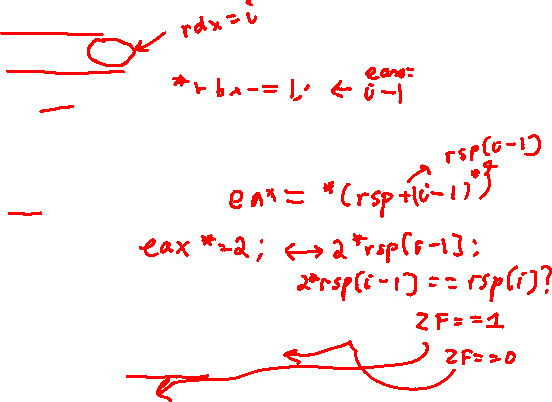 rdx = i
eax=
*rbx -= 1; ← i-1
rsp[i-1]
eax = *(rsp+(i-1)*4)
eax *=2; ↔ 2*rsp[i-1];
2*rsp[i-1] == rsp[i]?
ZF==1
ZF==0